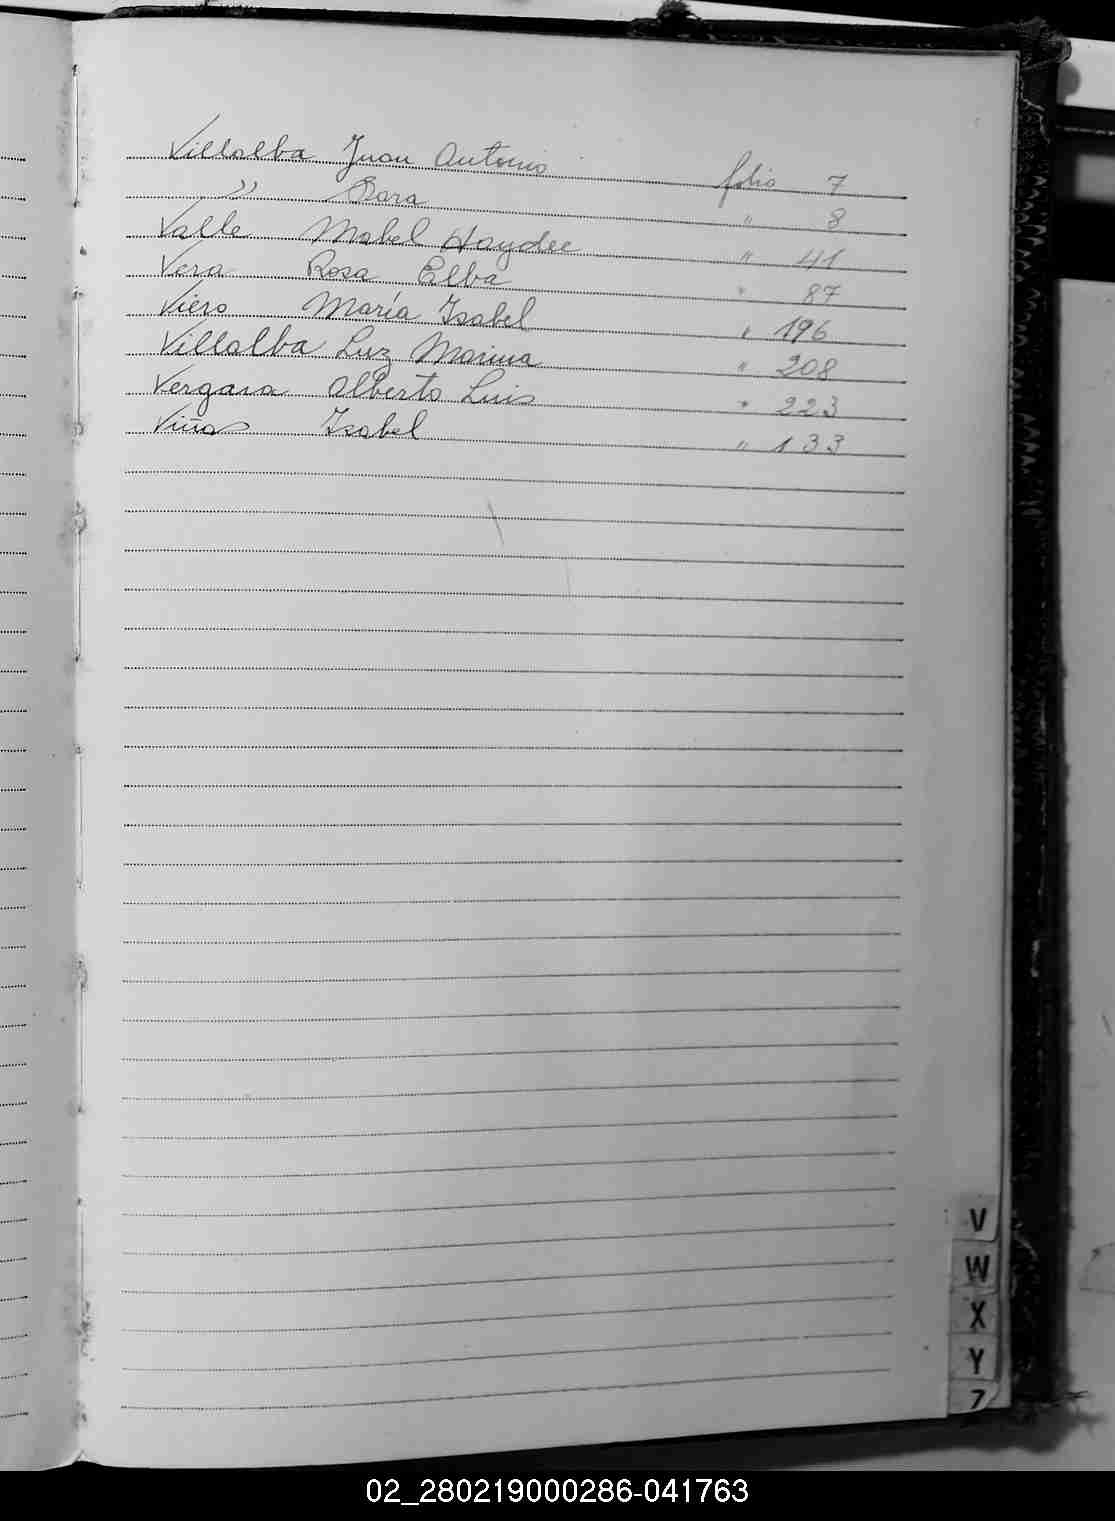 Villalba Juan Antonio folio 7
" Sara " 8
Valle Mabel Haydee " 41
Vera Rosa Elba " 87
Viero María Isabel " 196
Villalba Luz Marina " 208
Vergara Alberto Luis " 223
Viñas Isabel " 133
V
W
X
Y
Z
02_280219000286-041763